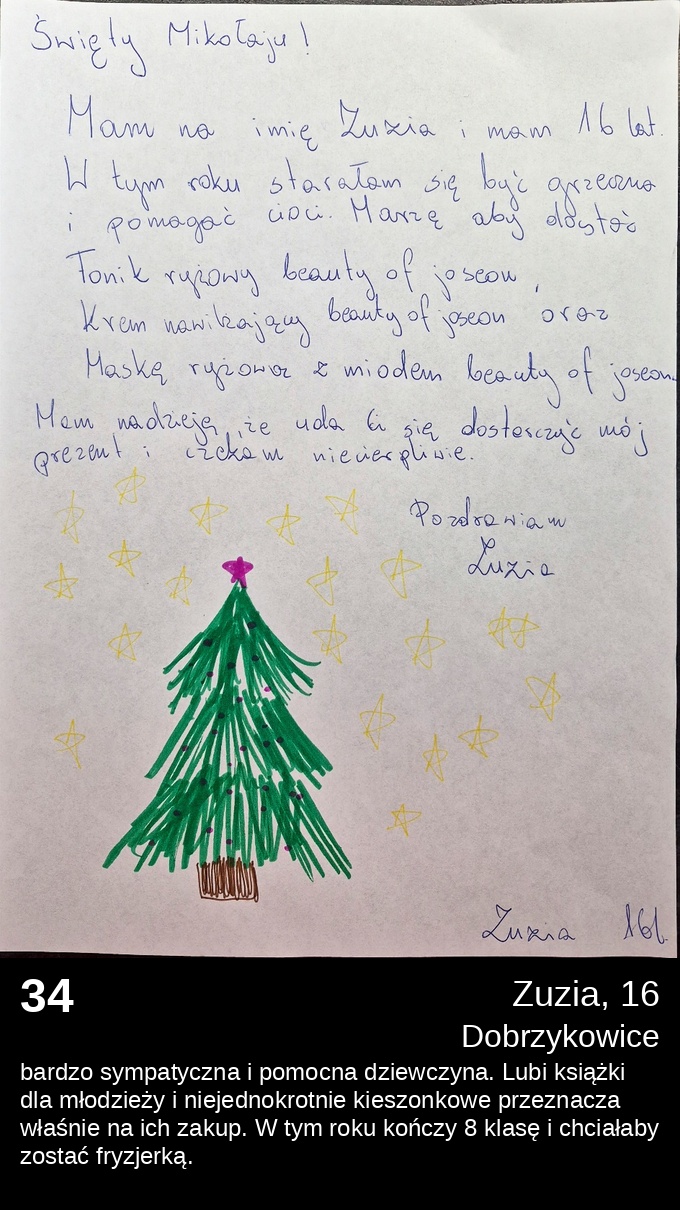 Święty Mikołaju!
Mam na imię Zuzia i mam 16 lat.
W tym roku starałam się być grzeczna
i pomagać cioci. Marzę aby dostać
Tonik ryżowy beauty of joseon,
Krem nawilżający beauty of joseon oraz
Maskę ryżową z miodem beauty of joseon.
Mam nadzieję, że uda Ci się dostarczyć mój
prezent i czekam niecierpliwie.
Pozdrawiam
Zuzia
Zuzia 16l.
34
Zuzia, 16
Dobrzykowice
bardzo sympatyczna i pomocna dziewczyna. Lubi książki
dla młodzieży i niejednokrotnie kieszonkowe przeznacza
właśnie na ich zakup. W tym roku kończy 8 klasę i chciałaby
zostać fryzjerką.